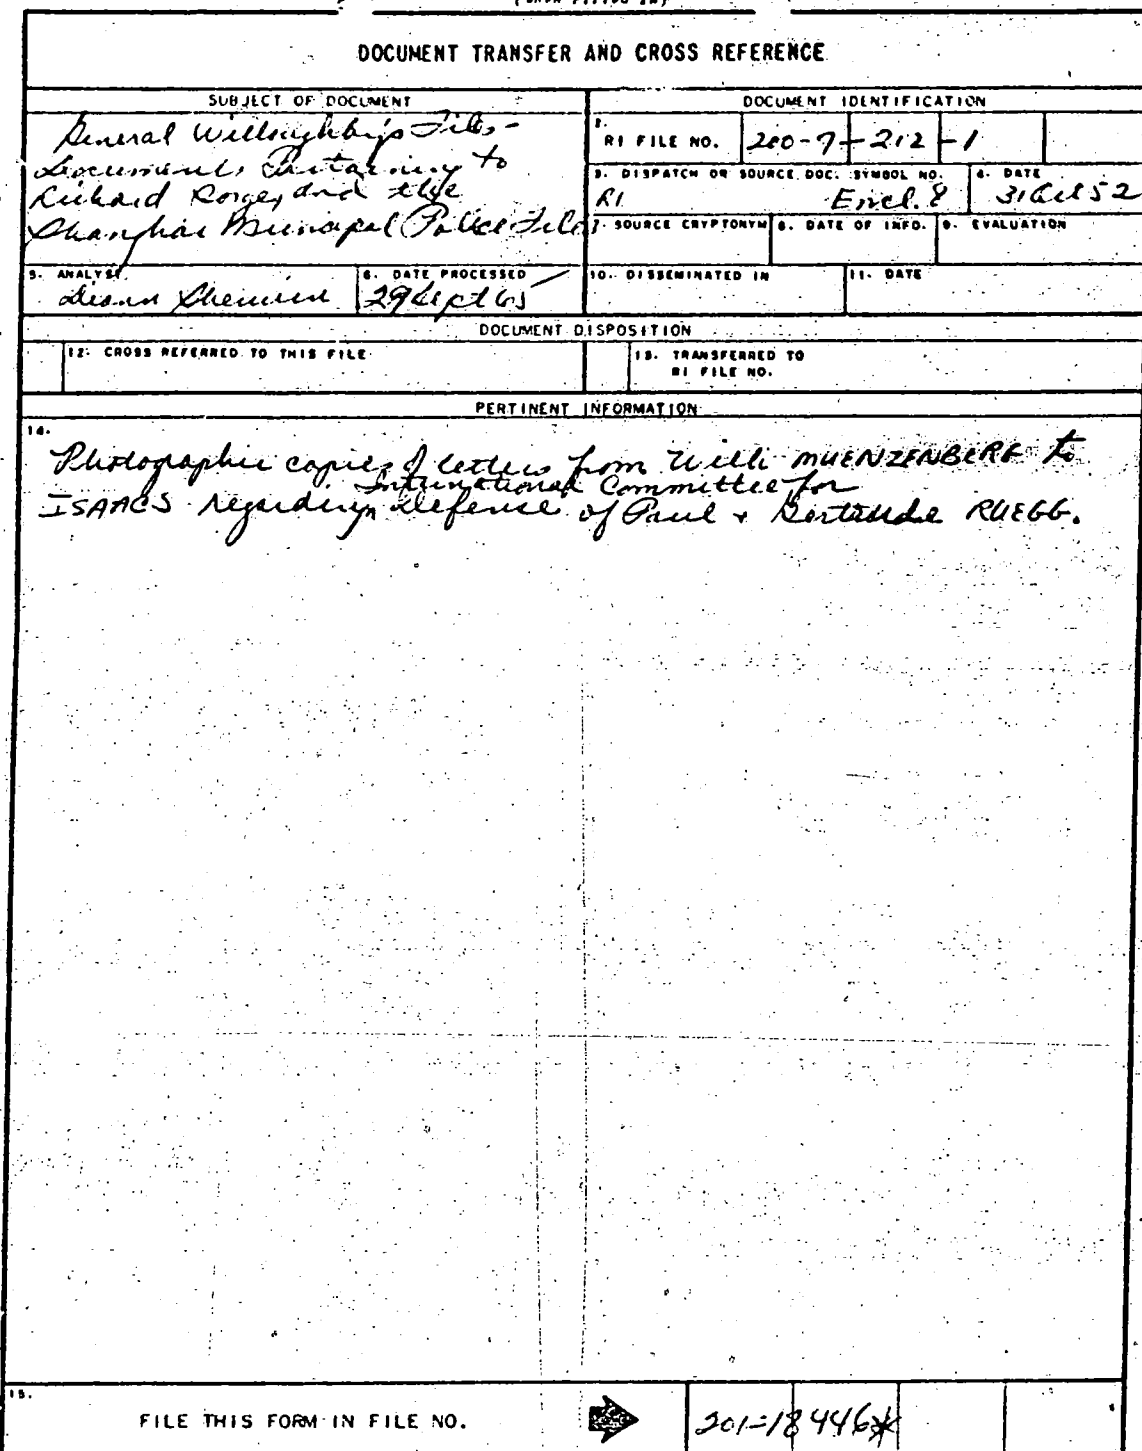 (When Filled In)
DOCUMENT TRANSFER AND CROSS REFERENCE
SUBJECT OF DOCUMENT
General Willoughby's Files -
Documents Pertaining to
Richard Sorge, and the
Shanghai Municipal Police Files
DOCUMENT IDENTIFICATION
2. RI FILE NO. 200-7-212-1
3. DISPATCH OR SOURCE DOC. SYMBOL NO.
RI Encl. 8
4. DATE
31 Oct 52
7. SOURCE CRYPTONYM
8. DATE OF INFO.
9. EVALUATION
5. ANALYST
6. DATE PROCESSED
29 Sept 65
10. DISSEMINATED IN
11. DATE
DOCUMENT DISPOSITION
12. CROSS REFERRED TO THIS FILE
13. TRANSFERRED TO
RI FILE NO.
PERTINENT INFORMATION
14.
Photographic copies of letters from Willi MUENZENBERG to
International Committee for
ISAACS regarding defense of Paul + Gertrude RUEGG.
15.
FILE THIS FORM IN FILE NO. 201-18446*